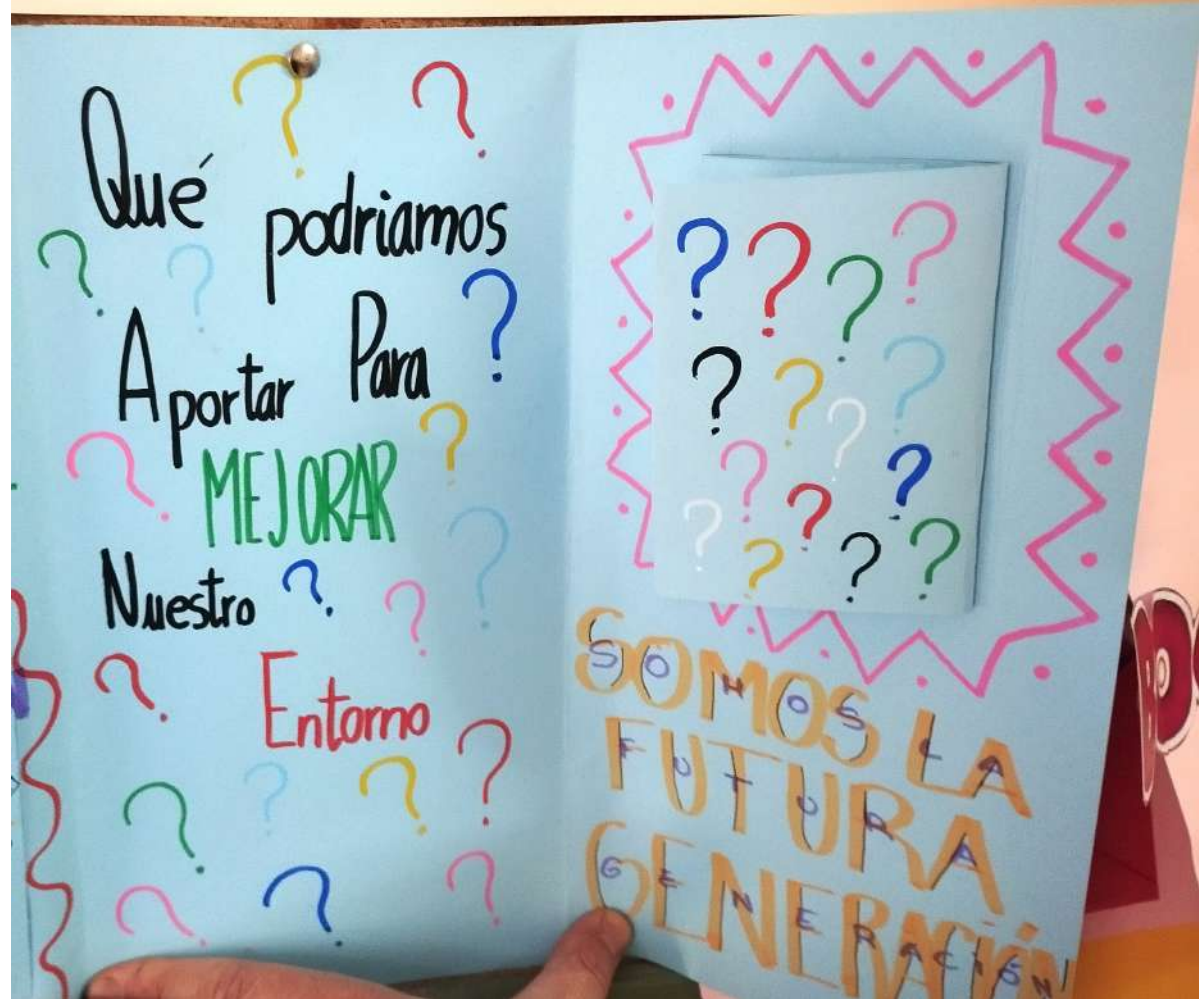 Qué podriamos
Aportar Para
MEJORAR
Nuestro
Entorno
SOMOS LA
FUTURA
GENERACIÓN